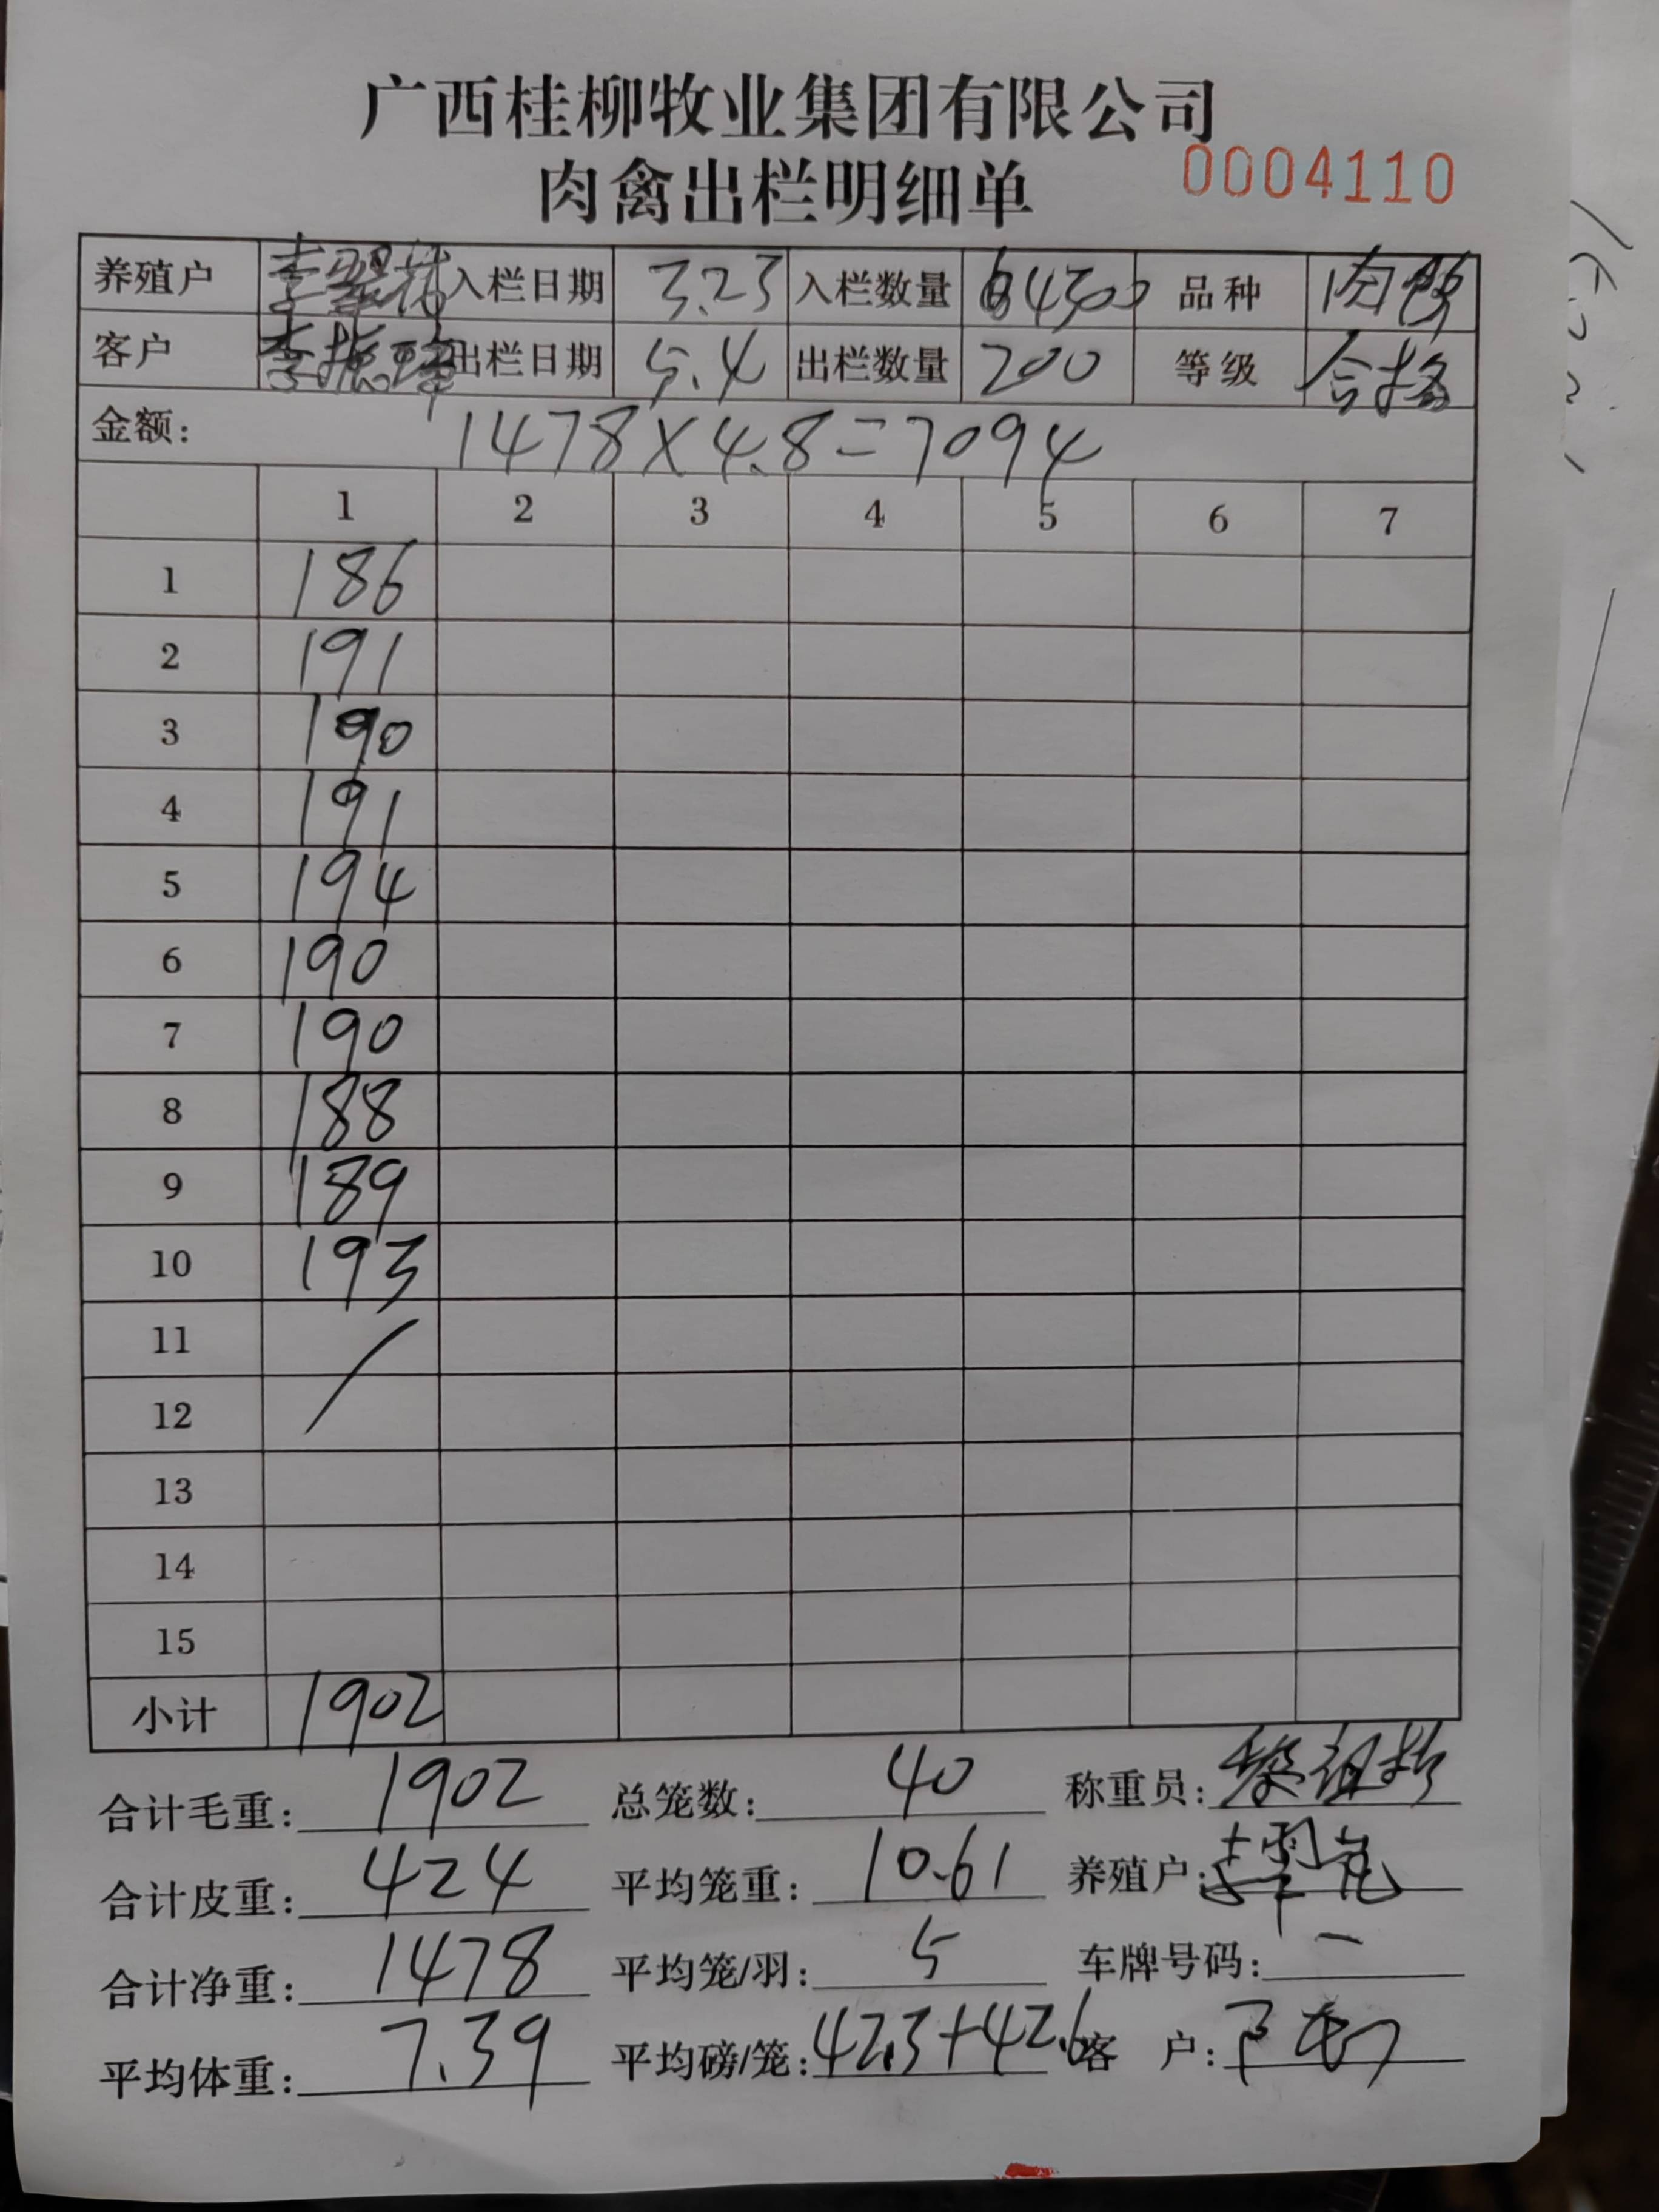 广西桂柳牧业集团有限公司
肉禽出栏明细单 0004110
养殖户 李翠 入栏日期 3.23 入栏数量 品种 肉鸭
客户 李振 出栏日期 5.4 出栏数量 200 等级 合格
金额: 1478×4.8=7094
1 2 3 4 5 6 7
1 186
2 191
3 190
4 191
5 194
6 190
7 190
8 188
9 189
10 193
11
12
13
14
15
小计 1902
合计毛重: 1902 总笼数: 40 称重员:
合计皮重: 424 平均笼重: 10.61 养殖户: 李翠
合计净重: 1478 平均笼/羽: 5 车牌号码: 一
平均体重: 7.39 平均磅/笼: 42.3+42.6 客 户: